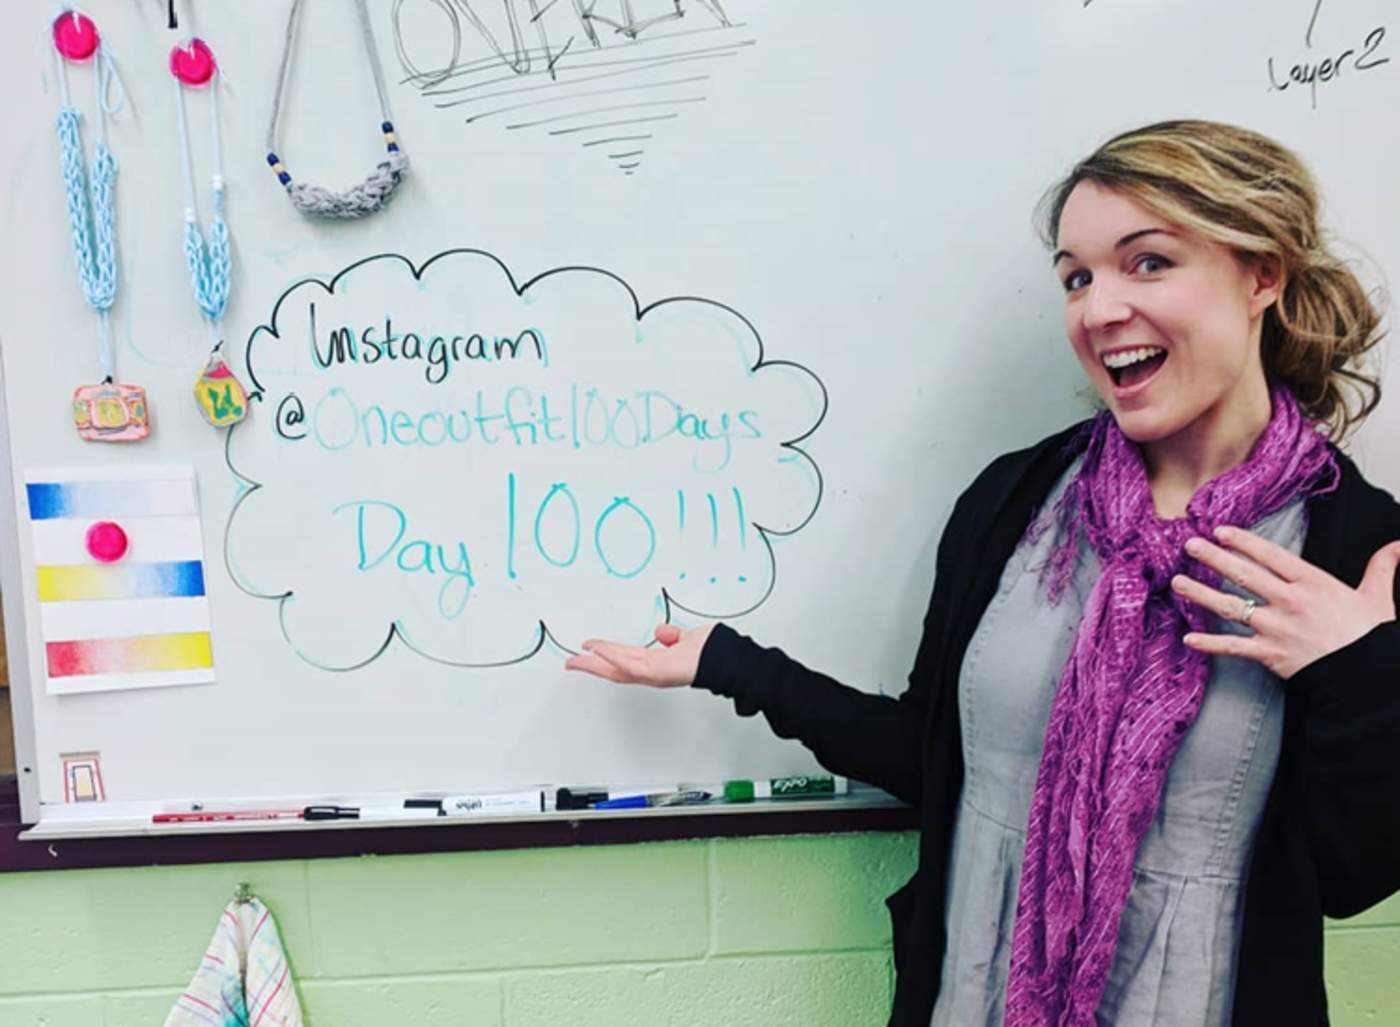 Layer 2
Instagram
@Oneoutfit100Days
Day 100!!!
U!
EXPO